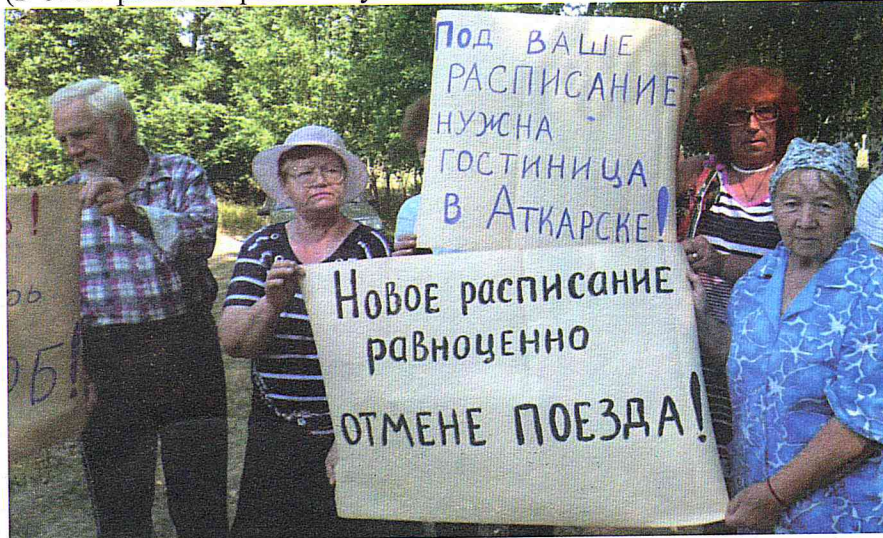 ПОД ВАШЕ
РАСПИСАНИЕ
НУЖНА
ГОСТИНИЦА
В АТКАРСКЕ!
Новое расписание
равноценно
ОТМЕНЕ ПОЕЗДА!